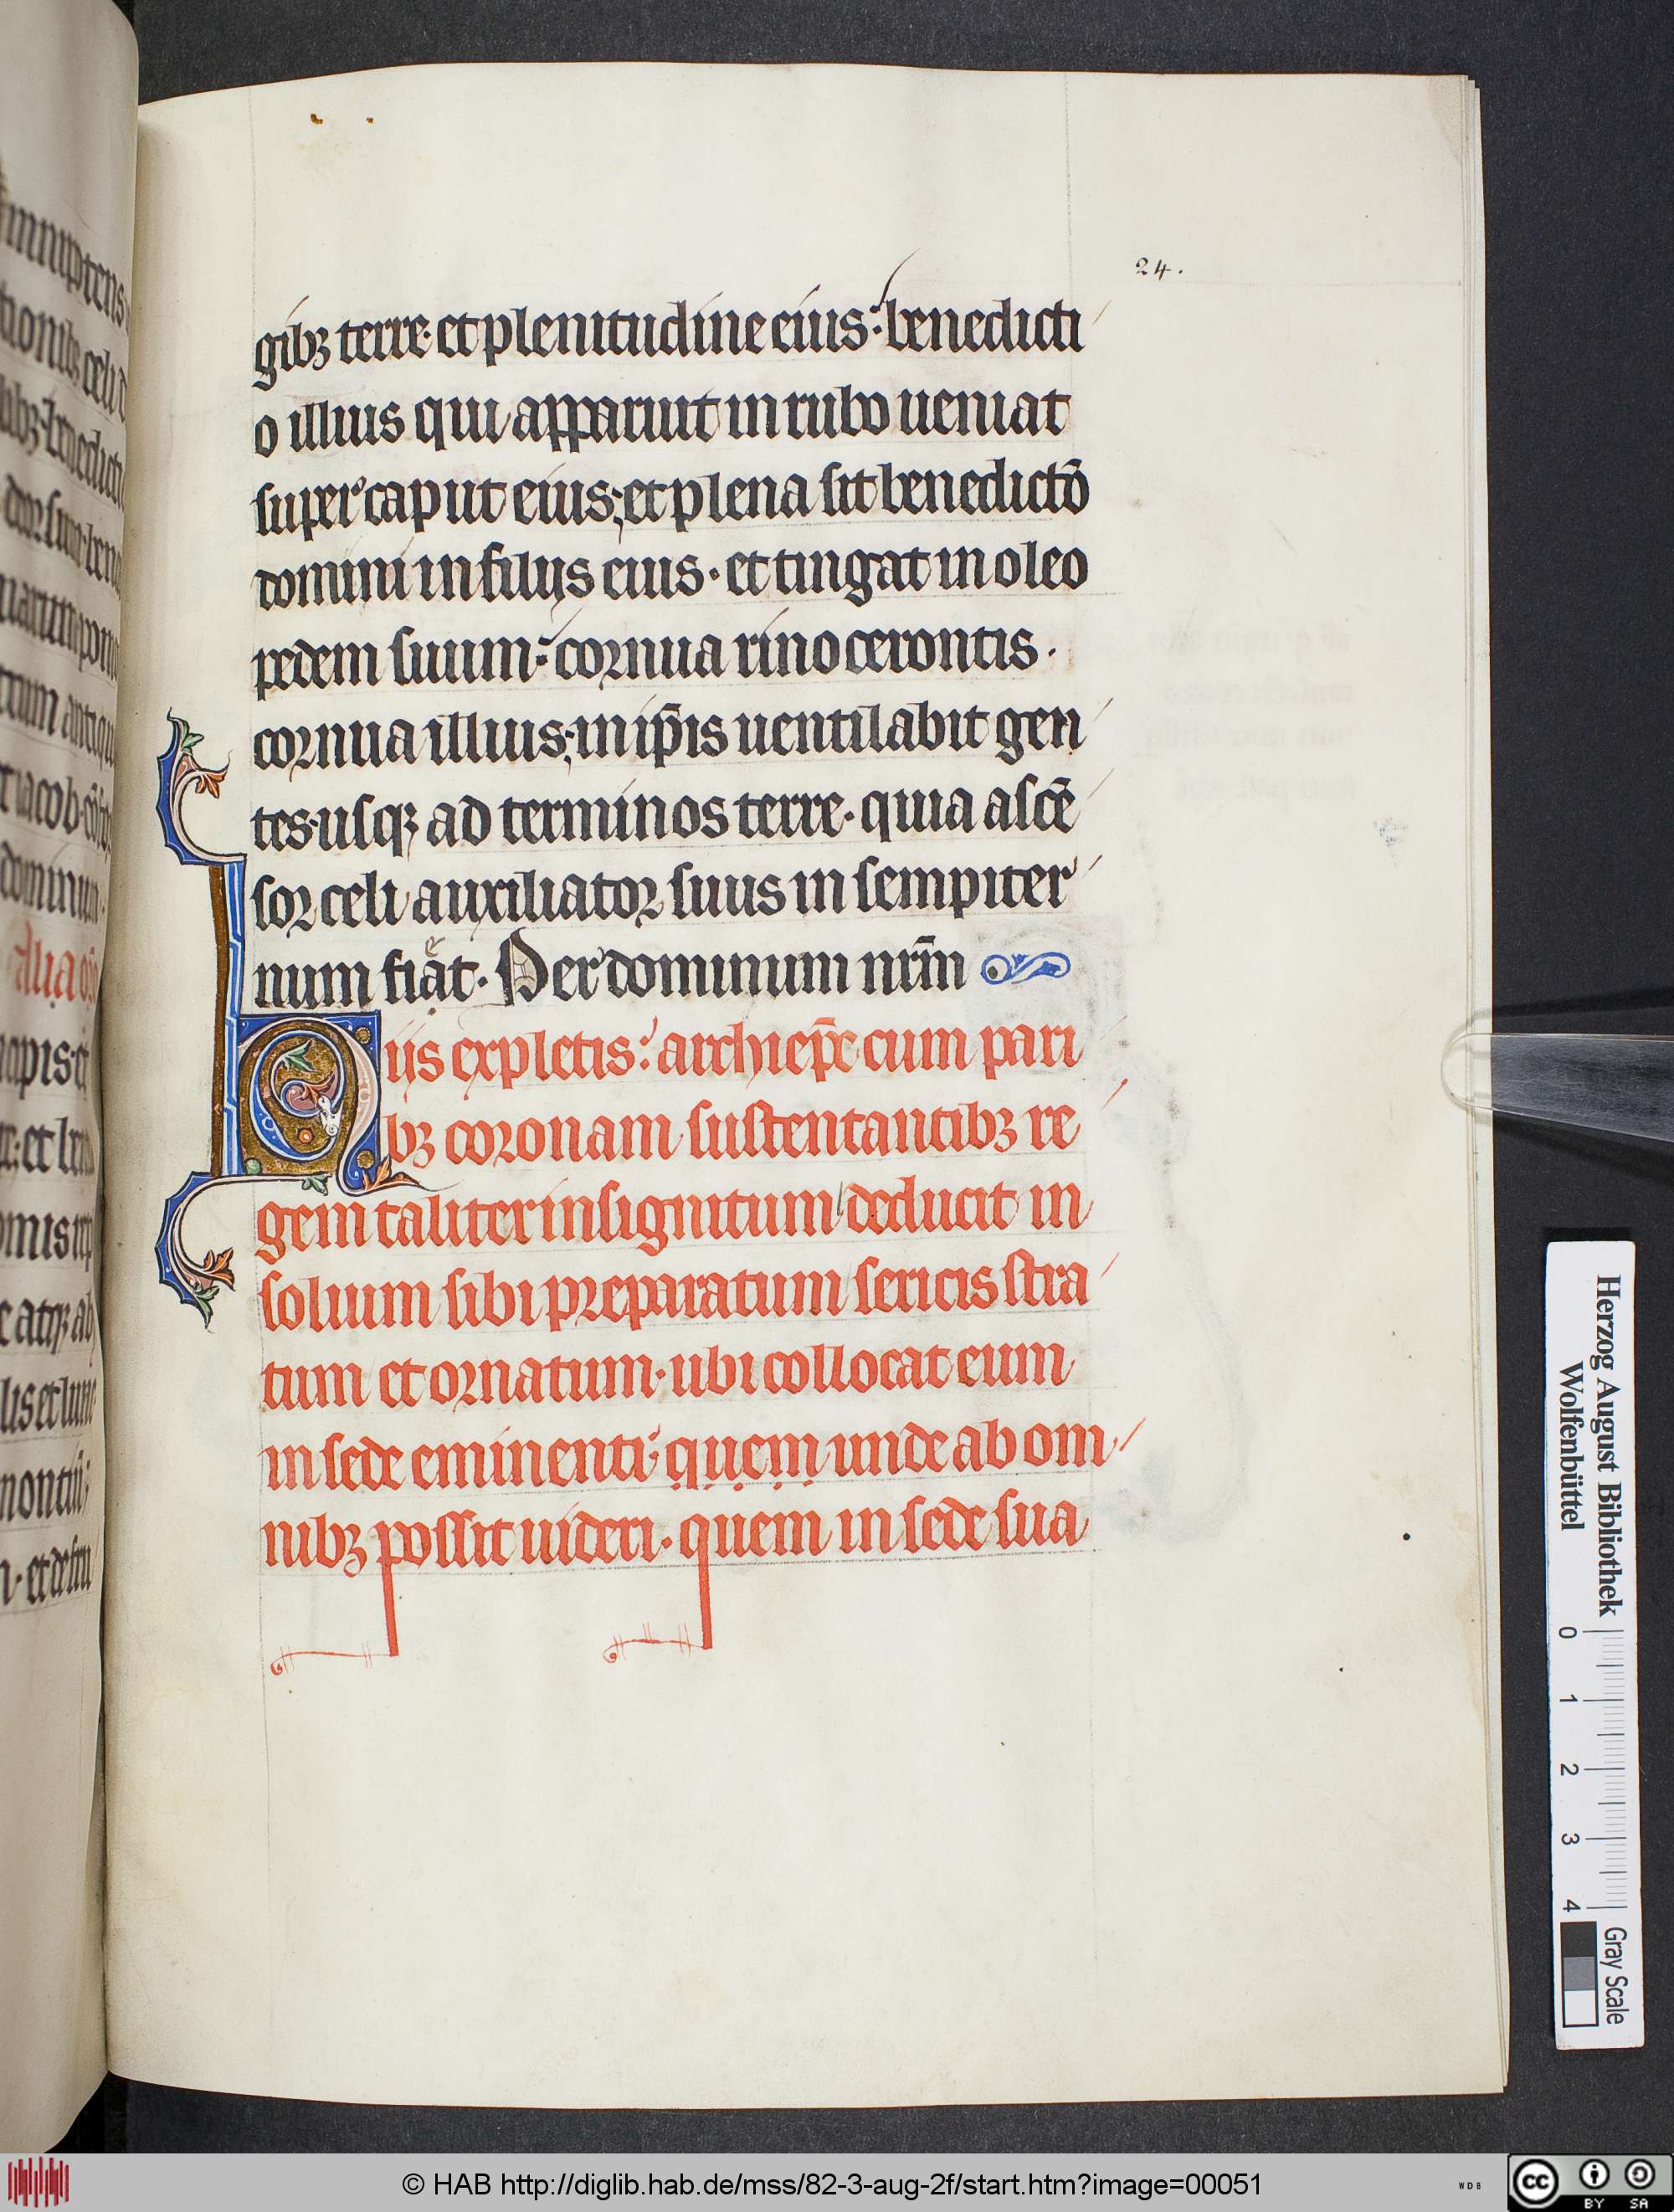 24.
gibꝫ terre· et plenitudine eius: benedicti
o illius qui apparuit in rubo ueniat
super caput eius; et plena sit benedictō
domini in filijs eius· et tingat in oleo
pedem suum: cornua rinocerontis·
cornua illius; in ip̄is uentilabit gen
tes· usqꝫ ad terminos terre· quia ascē
sor celi auxiliator suus in sempiter
num fiat· Per dominum nr̄m
Qiis expletis: archiep̄c cum pari
bꝫ coronam sustentantibꝫ re
gem taliter insignitum deducit in
solium sibi preparatum sericis stra
tum et ornatum· ubi collocat eum
in sede eminenti: quem unde ab om
nibꝫ possit uideri· quem in sede sua
Herzog August Bibliothek
Wolfenbüttel
0 1 2 3 4
Gray Scale
© HAB http://diglib.hab.de/mss/82-3-aug-2f/start.htm?image=00051
WDB
cc BY SA